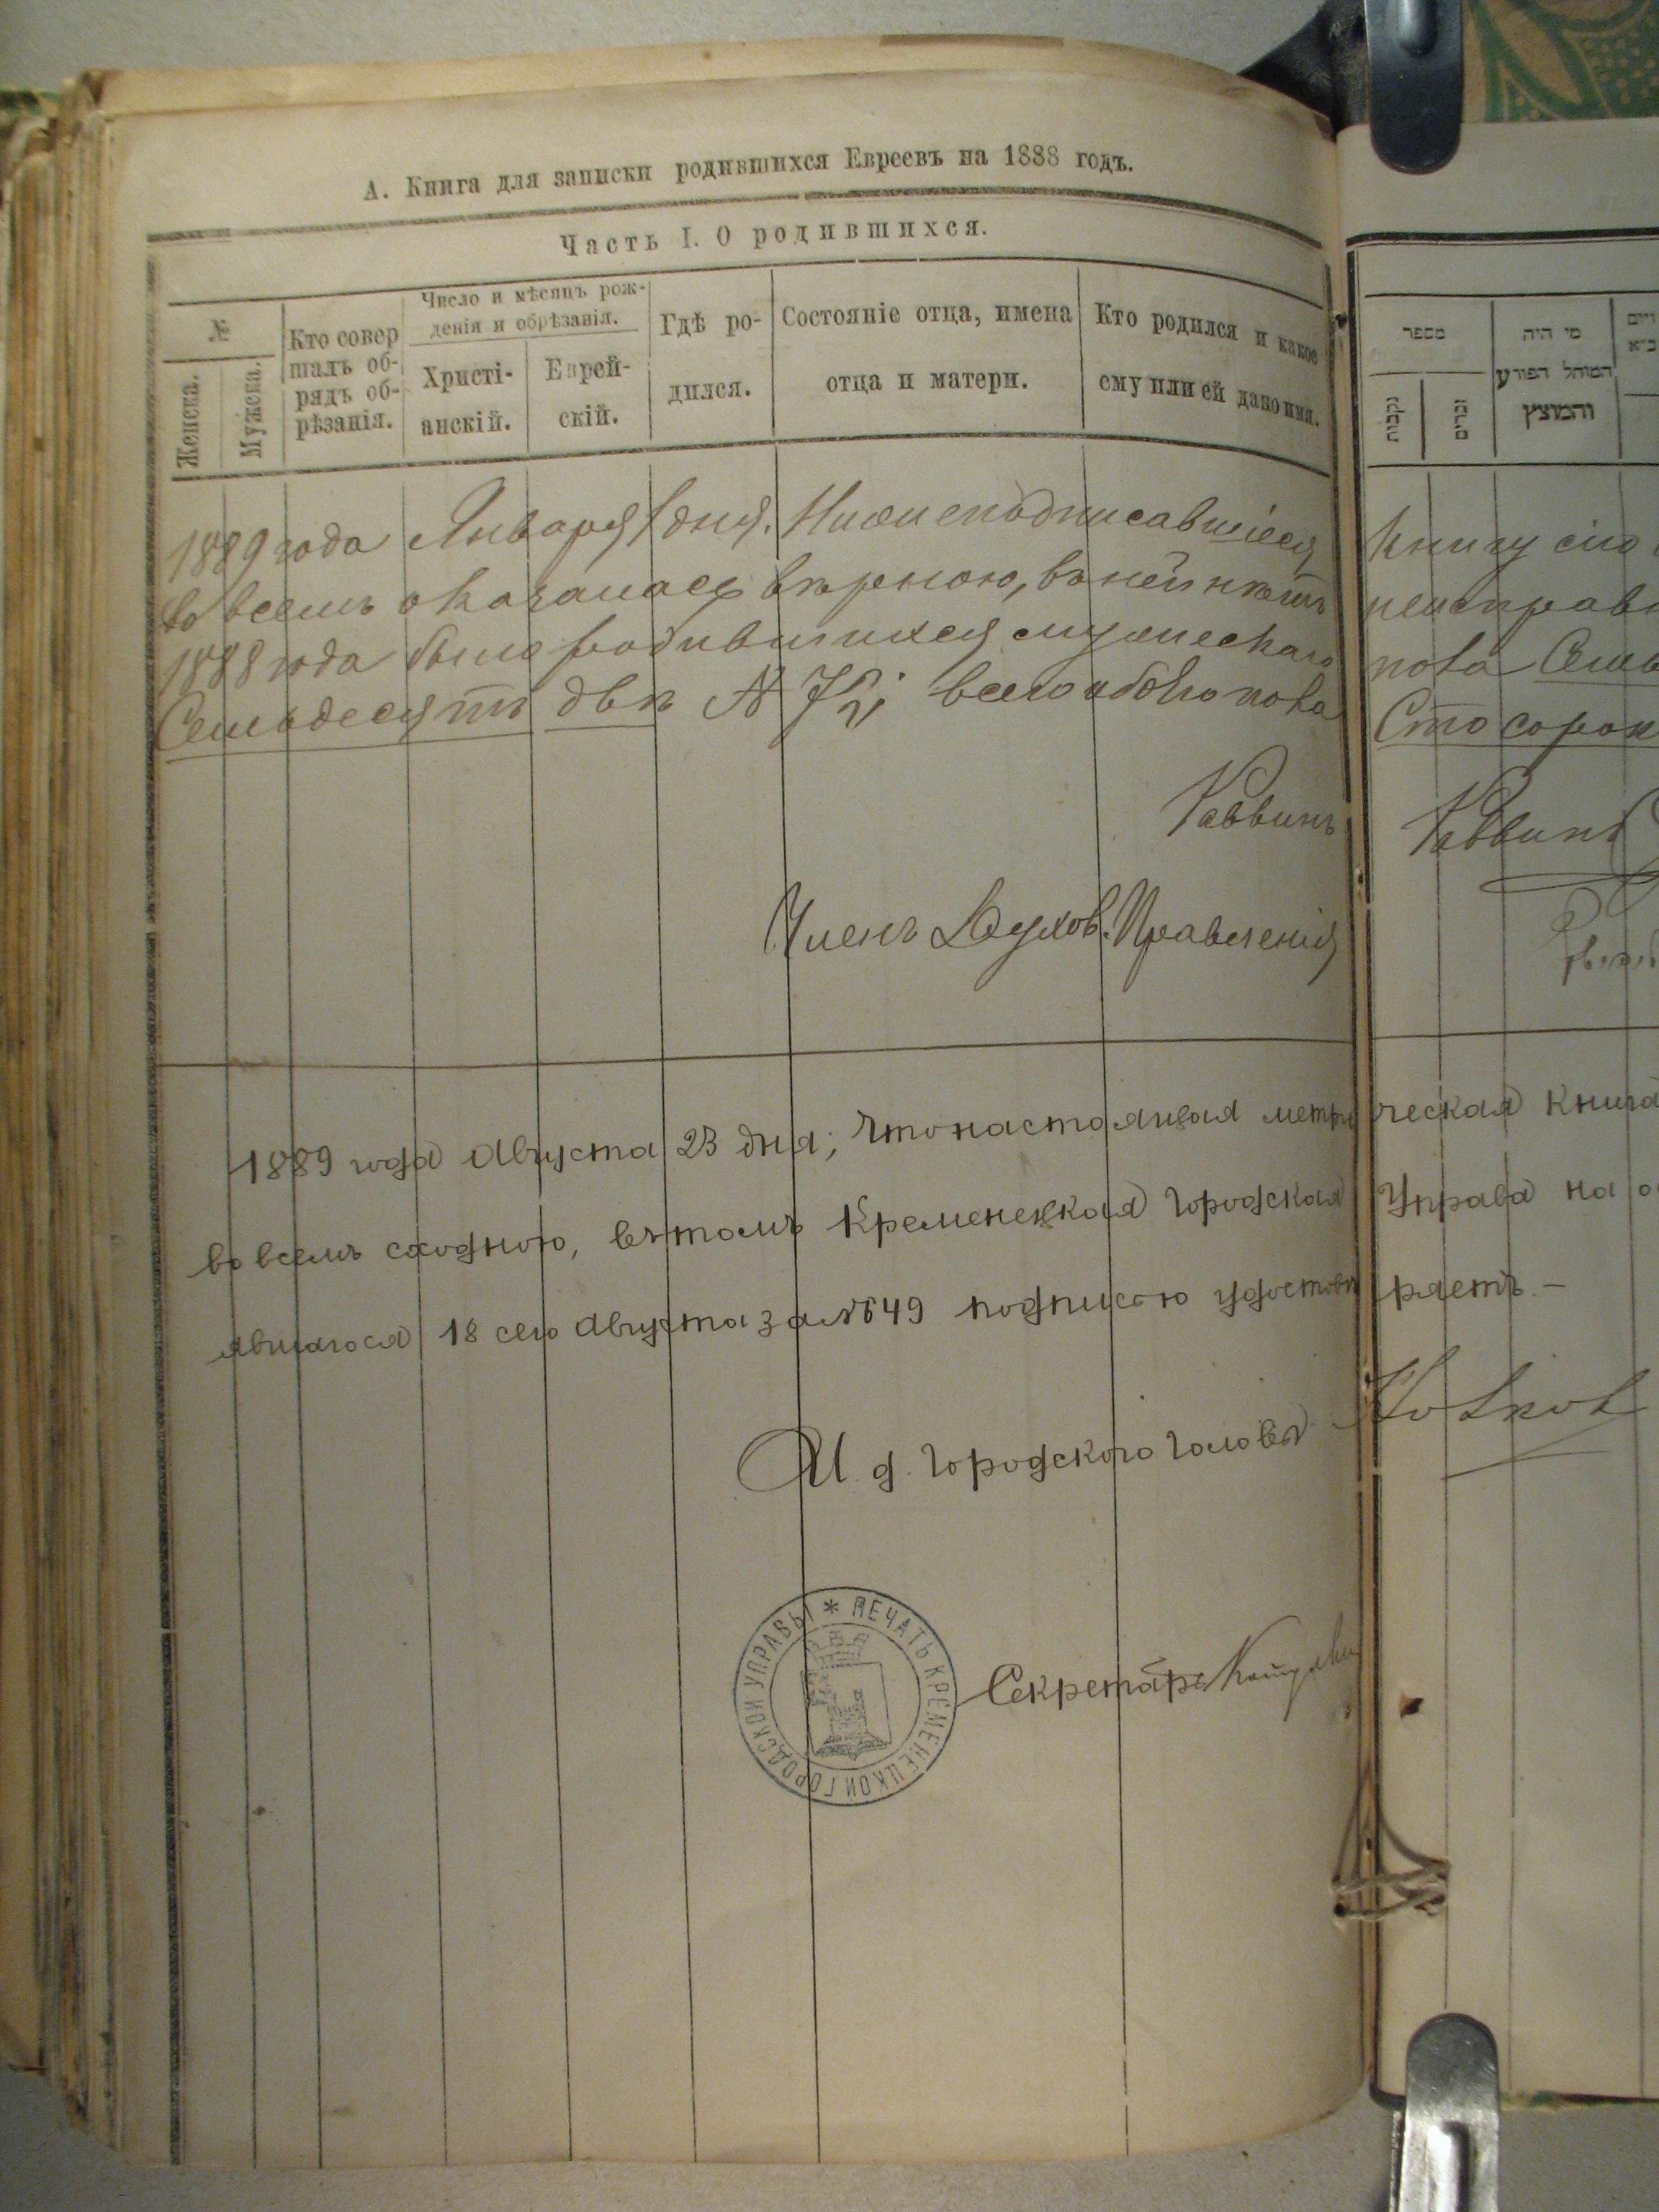 А. Книга для записки родившихся Евреевъ на 1888 годъ.
Часть I. О родившихся.
№
Женска.
Мужска.
Кто совер
шалъ об-
рядъ об-
рѣзанія.
Число и мѣсяцъ рож-
денія и обрѣзанія.
Христі-
анскій.
Еврей-
скій.
Гдѣ ро-
дился.
Состояніе отца, имена
отца и матери.
Кто родился и какое
ему или ей дано имя.
1889 года Января 1 дня. Нижеподписавшіеся
во всемъ оказалась вѣрною, въ ней нѣтъ
1888 года было родившихся мужескаго
Семьдесятъ двѣ № 72; всего обоего пола
Раввинъ
Членъ Духов. Правленія
1889 года Августа 23 дня; что настоящая метрическая книга
во всемъ сходною, въ томъ Кременецкая Городская Управа на
явшагося 18 сего Августа за № 649 подписью удостовѣряетъ. —
И. д. Городского Головы
ПЕЧАТЬ КРЕМЕНЕЦКОЙ ГОРОДСКОЙ УПРАВЫ *
Секретарь
מספר
נקבות
זכרים
מי היה
המוהל הפורע
והמוצץ
Книгу сію
неисправ
пола Семь
Сто сорок
Раввинъ